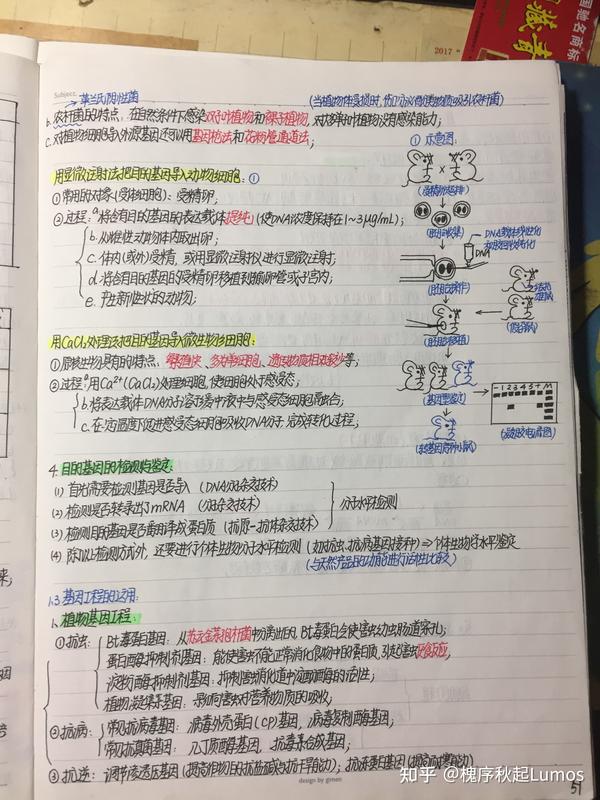 国驰名商标
藏青
2017
Subject.
革兰氏阴性菌
(当植物体受损时,伤口处分泌酚类物质吸引农杆菌)
b. 农杆菌的特点:在自然条件下感染双子叶植物和裸子植物,对大多数单子叶植物没有感染能力;
c. 对植物细胞导入外源基因还可以用基因枪法和花粉管通道法;
用显微注射法把目的基因导入动物细胞:①
① 常用的对象(受体细胞):受精卵;
② 过程:a. 将含有目的基因的表达载体提纯;(使DNA浓度保持在1~3μg/mL);
b. 从雌性动物体内取出卵;
c. 体内(或外)受精,或用显微注射仪进行显微注射;
d. 将含有目的基因的受精卵移植到输卵管或子宫内;
e. 产生新性状的动物;
① 示意图:
(胚胎收集)
DNA
(胚胎移植)
(基因鉴定)
- 1 2 3 4 5 + M
(凝胶电泳图)
(转基因阳性小鼠)
用CaCl₂处理法把目的基因导入微生物细胞:
① 原核生物具有的特点:繁殖快、多为单细胞、遗传物质相对较少等;
② 过程:a. 用Ca²⁺(CaCl₂)处理细胞,使细胞处于感受态;
b. 将表达载体DNA分子溶于缓冲液中与感受态细胞混合;
c. 在一定温度下促进感受态细胞吸收DNA分子,完成转化过程;
4. 目的基因的检测与鉴定:
(1) 首先需要检测基因是否导入(DNA分子杂交技术)
(2) 检测是否转录出了mRNA(分子杂交技术)
(3) 检测目的基因是否翻译成蛋白质(抗原-抗体杂交技术)
分子水平检测
(4) 除以上检测方式外,还要进行个体生物学水平检测(如抗虫、抗病基因接种)⇒个体生物学水平鉴定
(与天然产品的功能进行活性比较)
1.3 基因工程的应用:
1. 植物基因工程:
① 抗虫: Bt毒蛋白基因:从苏云金芽孢杆菌中分离出的,Bt毒蛋白会使害虫幼虫肠道穿孔;
蛋白酶抑制剂基因:能使害虫不能正常消化食物中的蛋白质,引起害虫厌食反应;
淀粉酶抑制剂基因:抑制害虫消化道中淀粉酶的活性;
植物凝集素基因:影响害虫对营养物质的吸收;
② 抗病: 常见抗病毒基因:病毒外壳蛋白(CP)基因,病毒复制酶基因;
常见抗真菌基因:几丁质酶基因,抗毒素合成基因;
③ 抗逆:调节渗透压基因(提高作物的抗盐碱与抗干旱能力);抗冻蛋白基因(提高耐寒能力)
design by gimen
知乎 @槐序秋起Lumos
51